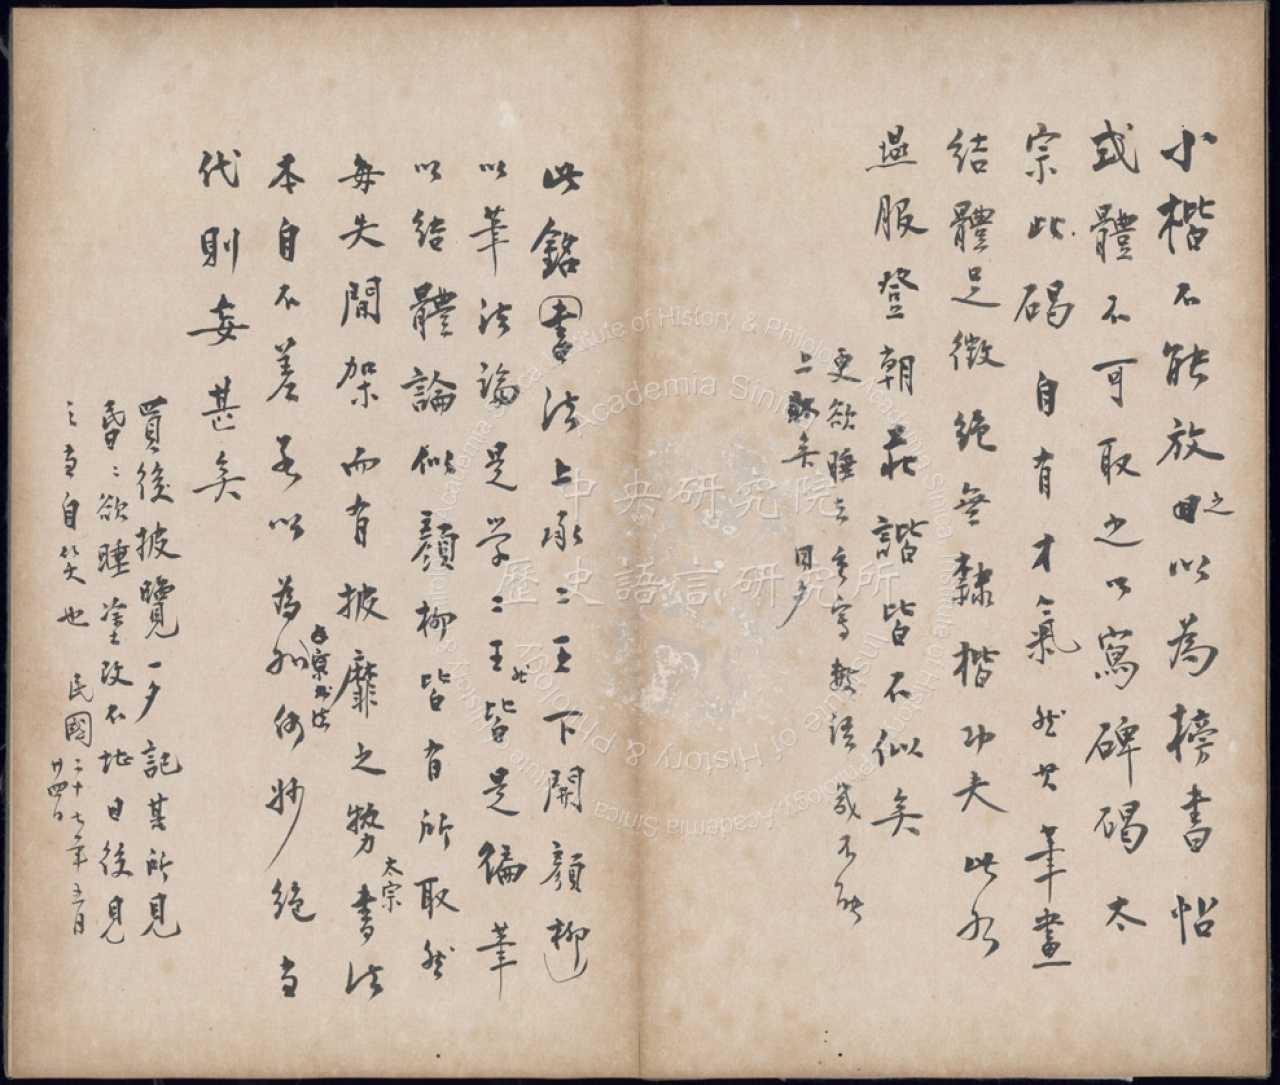 小楷不能放之以為榜書帖
或體不可取之以寫碑碣太
宗此碣自有才氣然其筆畫
結體足徵絕無隸楷功夫此如
燕服登朝莊諧皆不似矣
更欲睡去 寫數語 或不能
上 矣 同夕
此銘書法上承二王下開顏柳
以筆法論是學二王然皆是偏筆
以結體論似顏柳皆有所取然
每失間架而有披靡之勢太宗書法
本自不差若以為如何妙絕當
代則妄甚矣
買後披覽一夕記其所見
昏昏欲睡塗改不 日後見
之當自笑也 民國二十七年五月
廿四日
中央研究院
歷史語言研究所
Institute of History & Philology
Academia Sinica